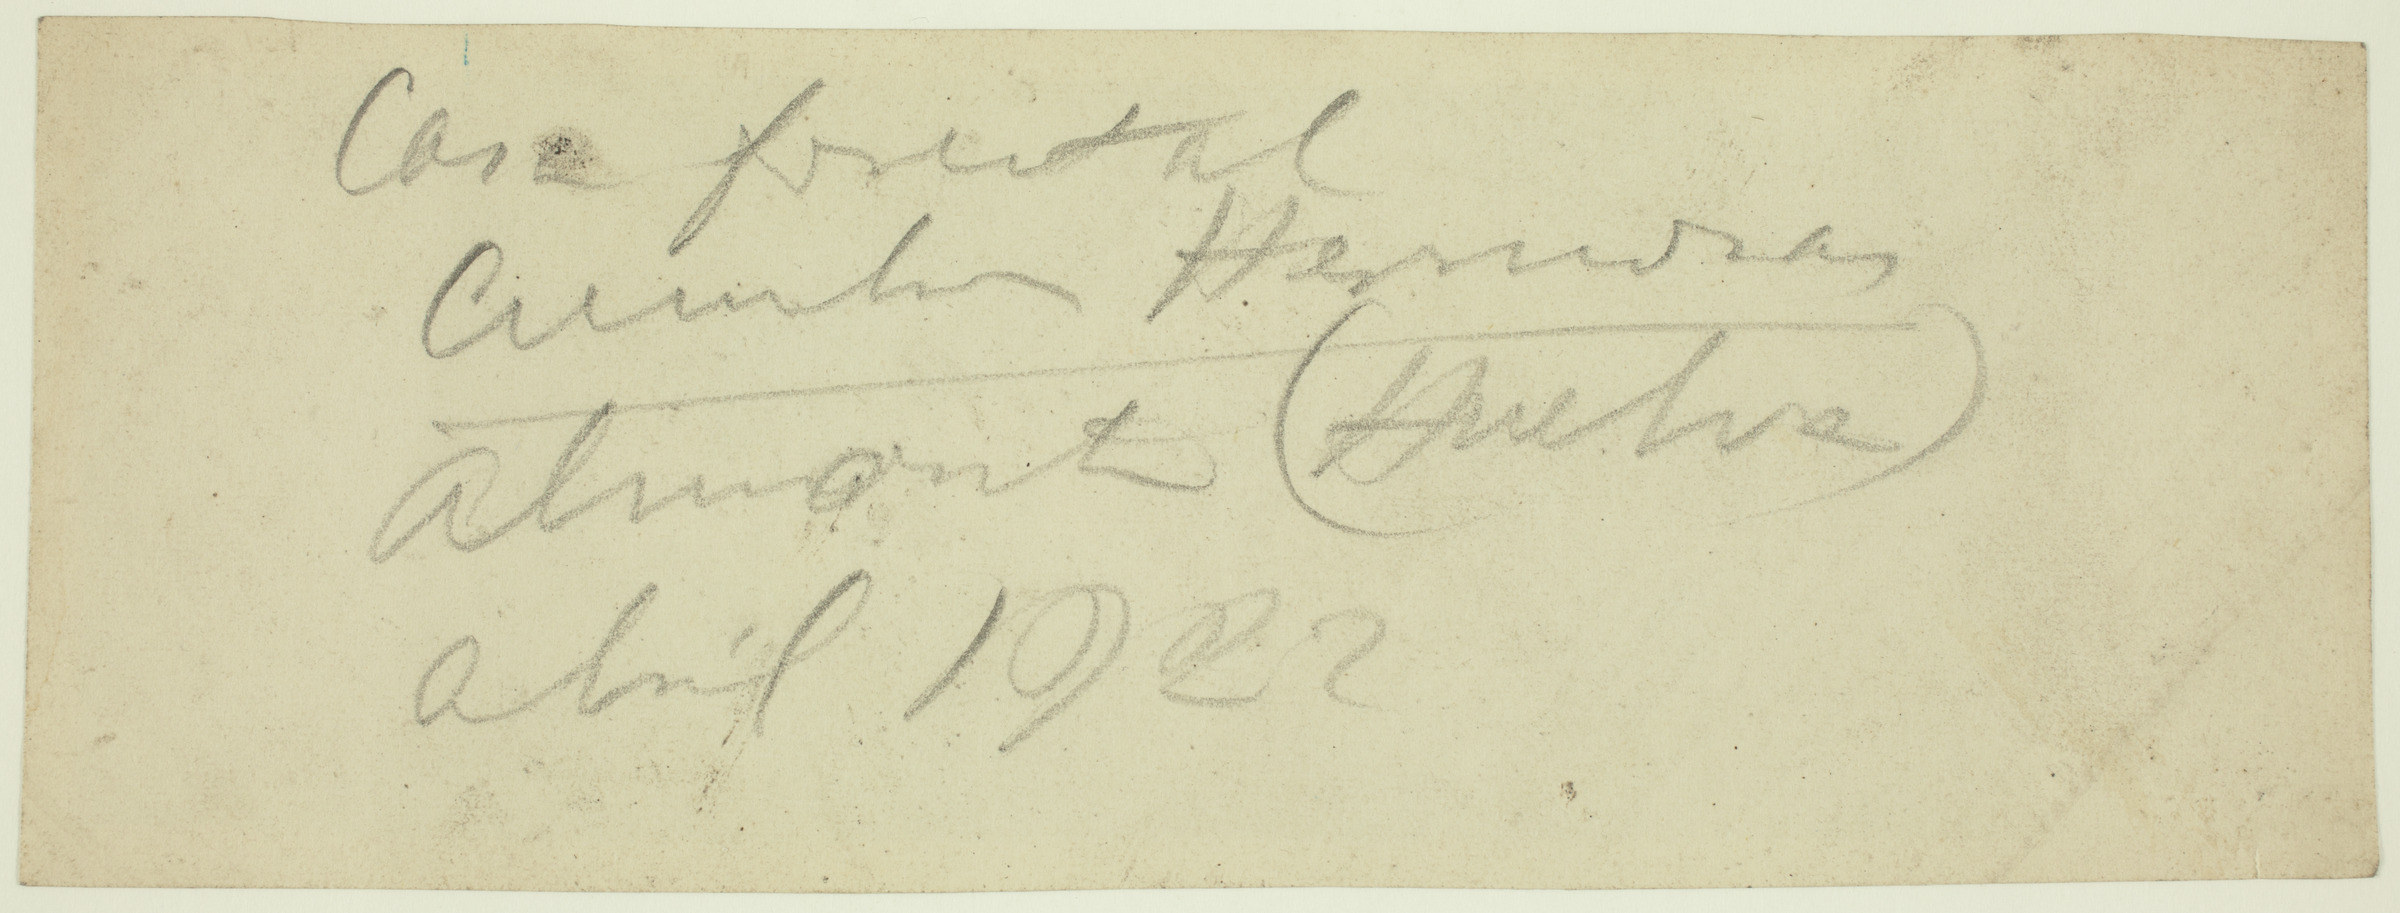 Casa forestal
Cumbres Hermosas
Almonte (Huelva)
abril 1922